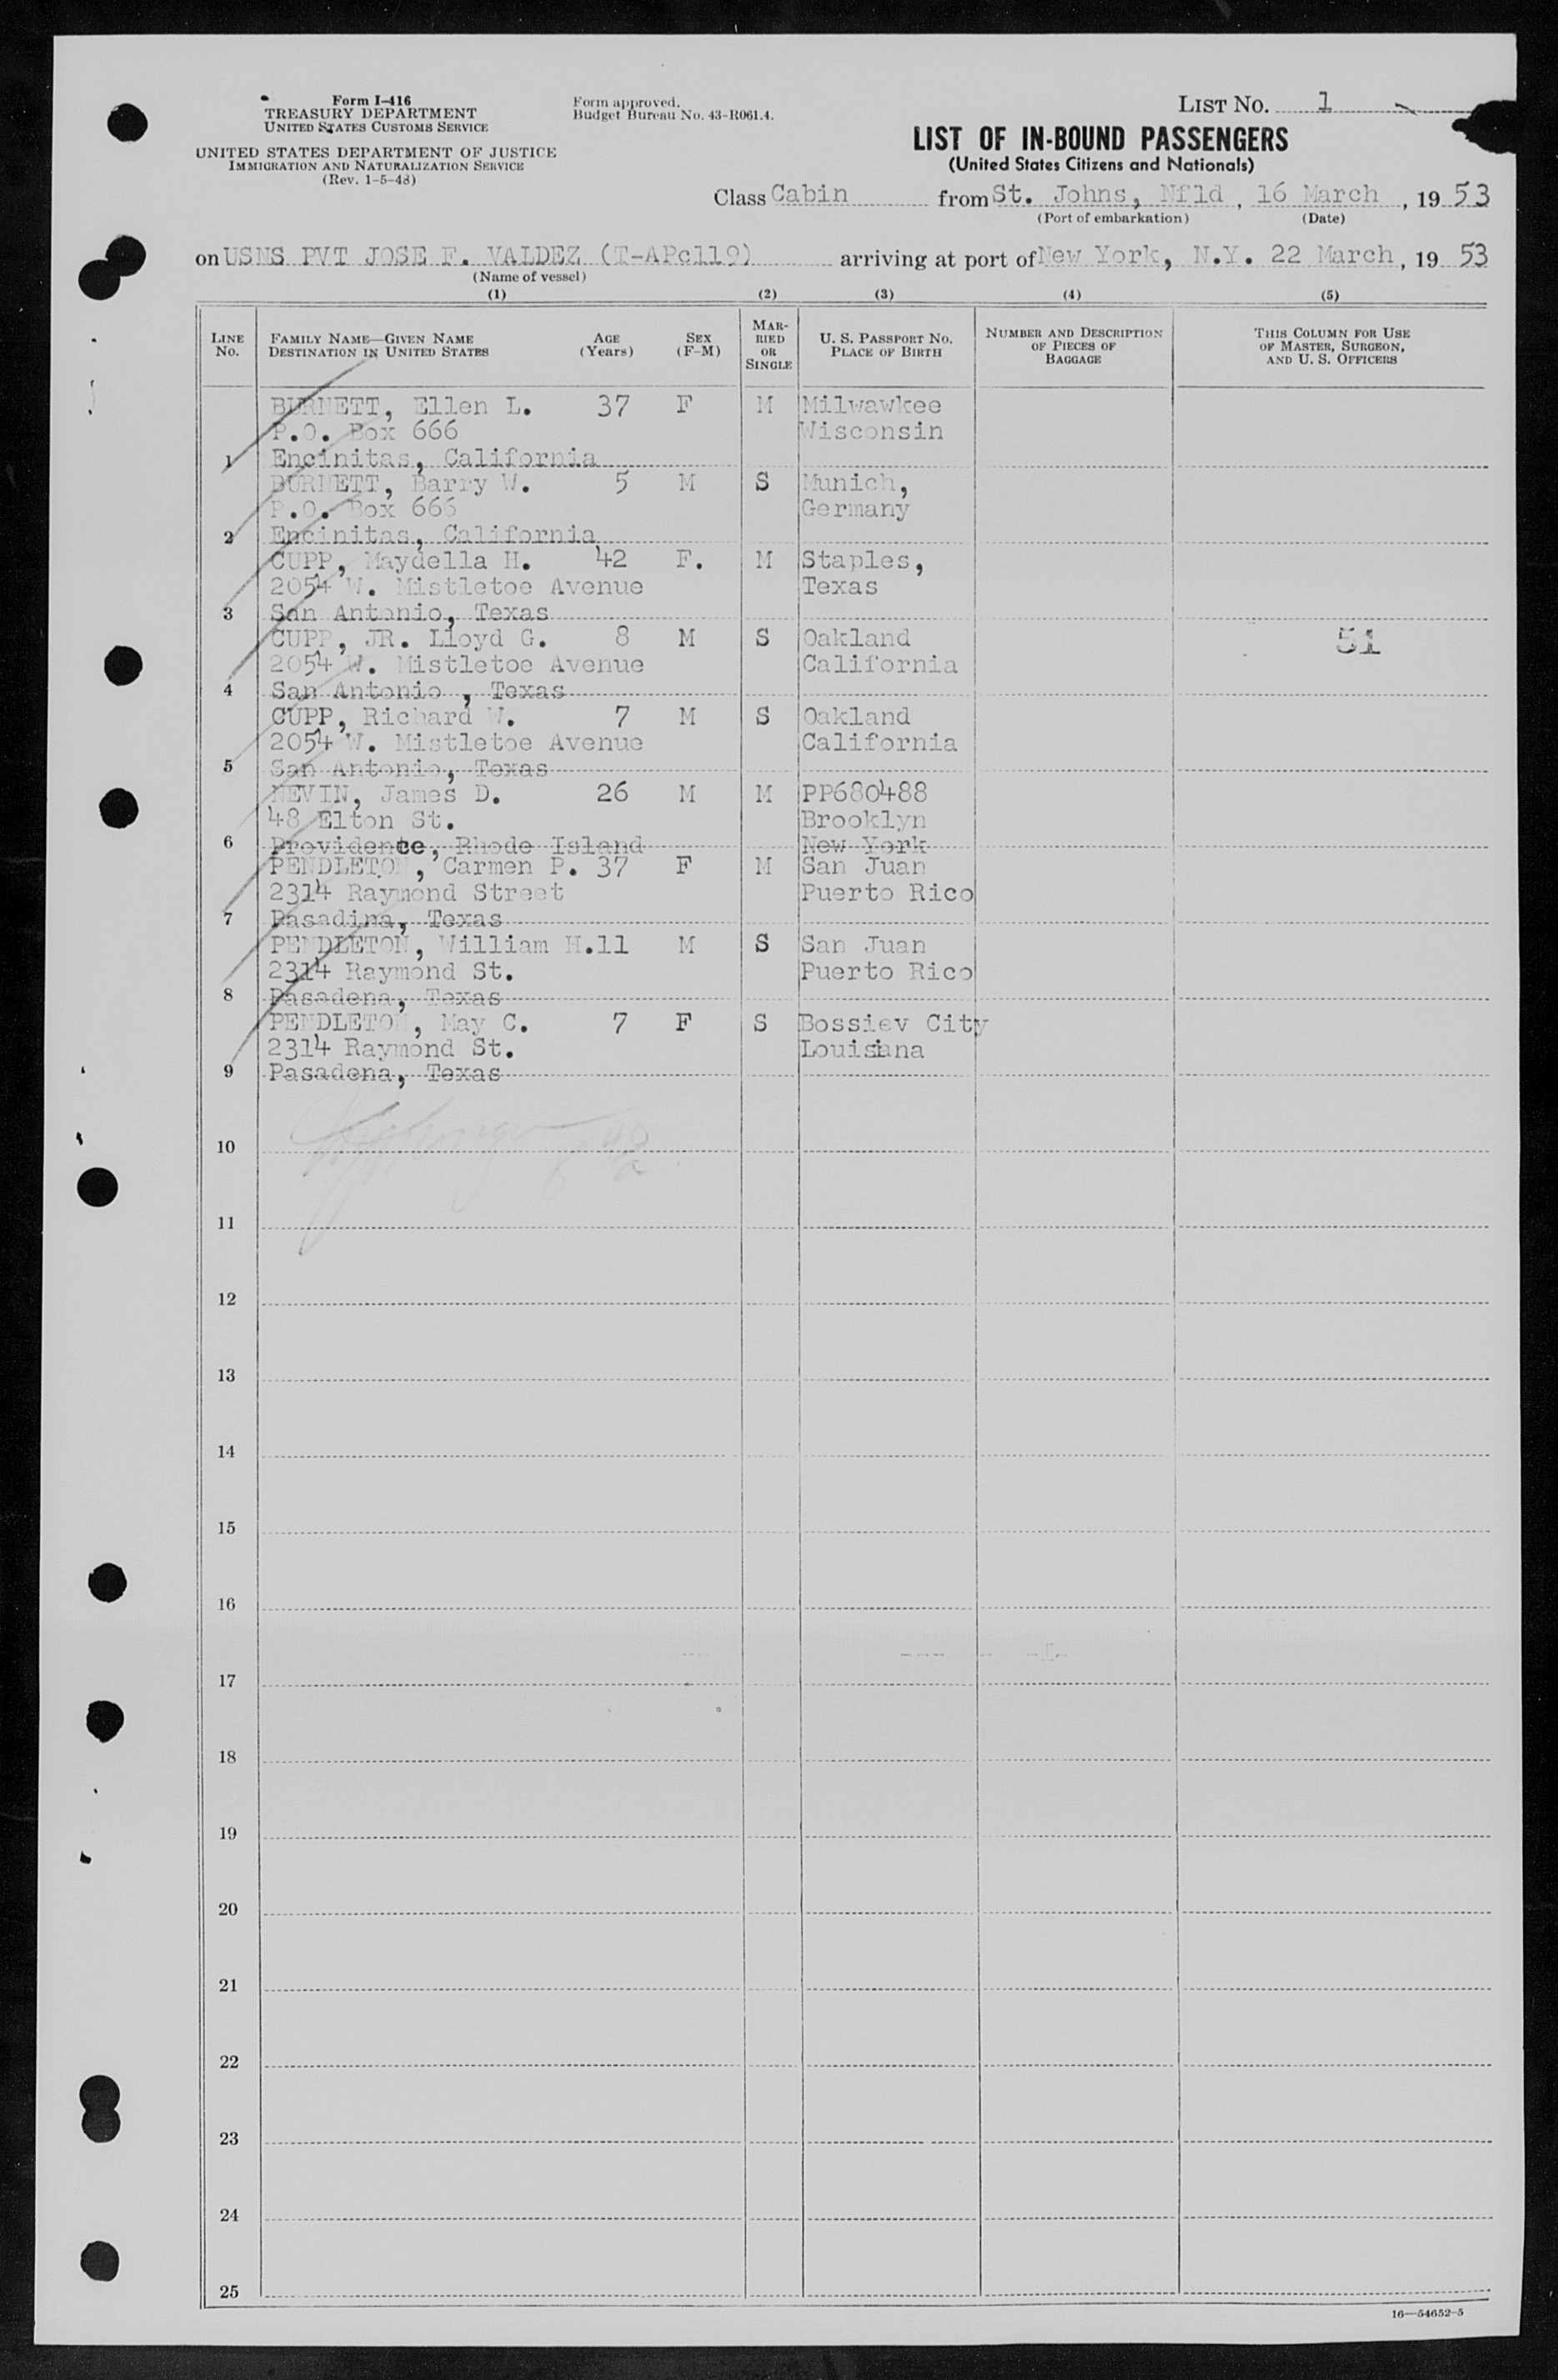 Form I-416
TREASURY DEPARTMENT
UNITED STATES CUSTOMS SERVICE
UNITED STATES DEPARTMENT OF JUSTICE
IMMIGRATION AND NATURALIZATION SERVICE
(Rev. 1-5-48)
Form approved.
Budget Bureau No. 43-R061.4.
LIST NO. 1
LIST OF IN-BOUND PASSENGERS
(United States Citizens and Nationals)
Class Cabin from St. Johns, Nfld, 16 March, 1953
(Port of embarkation) (Date)
on USNS PVT JOSE F. VALDEZ (T-APc119) arriving at port of New York, N.Y. 22 March, 1953
(Name of vessel)
(1) (2) (3) (4) (5)
LINE NO.
FAMILY NAME—GIVEN NAME
DESTINATION IN UNITED STATES
AGE (Years)
SEX (F-M)
MARRIED OR SINGLE
U. S. PASSPORT NO.
PLACE OF BIRTH
NUMBER AND DESCRIPTION
OF PIECES OF
BAGGAGE
THIS COLUMN FOR USE
OF MASTER, SURGEON,
AND U. S. OFFICERS
BURNETT, Ellen L. 37 F M Milwawkee
P.O. Box 666 Wisconsin
1 Encinitas, California
BURNETT, Barry W. 5 M S Munich,
P.O. Box 666 Germany
2 Encinitas, California
CUPP, Maydella H. 42 F. M Staples,
2054 W. Mistletoe Avenue Texas
3 San Antonio, Texas
CUPP, JR. Lloyd G. 8 M S Oakland 51
2054 W. Mistletoe Avenue California
4 San Antonio , Texas
CUPP, Richard W. 7 M S Oakland
2054 W. Mistletoe Avenue California
5 San Antonio, Texas
NEVIN, James D. 26 M M PP680488
48 Elton St. Brooklyn
6 Providence, Rhode Island New York
PENDLETON, Carmen P. 37 F M San Juan
2314 Raymond Street Puerto Rico
7 Pasadina, Texas
PENDLETON, William H. 11 M S San Juan
2314 Raymond St. Puerto Rico
8 Pasadena, Texas
PENDLETON, May C. 7 F S Bossiev City
2314 Raymond St. Louisiana
9 Pasadena, Texas
10
11
12
13
14
15
16
17
18
19
20
21
22
23
24
25
16—54652-5